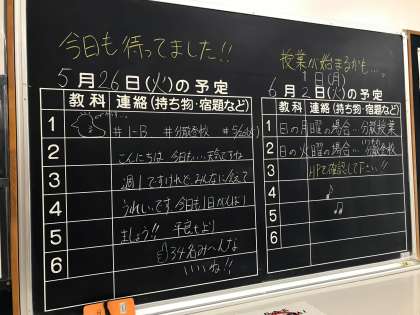 今日も待ってました!!
5月26日(火)の予定
教科 連絡(持ち物・宿題など)
1 #1-B #分散登校 #5/26(火)
2 こんにちは 今日も…天気ですね
3 過してすけれど、みんなに会えて
4 うれしいです。今日も1日がんば
5 ましょう!! 平良せより
6 34名み〜んな
いいね!!
授業が始まるかも…。
1日(月)
6月2日(火)の予定
教科 連絡(持ち物・宿題など)
1 日の月曜の場合…分散授業
2 日の火曜の場合…分散登校
3 HPで確認して下さい!!
4 ♪
5 ♫
6